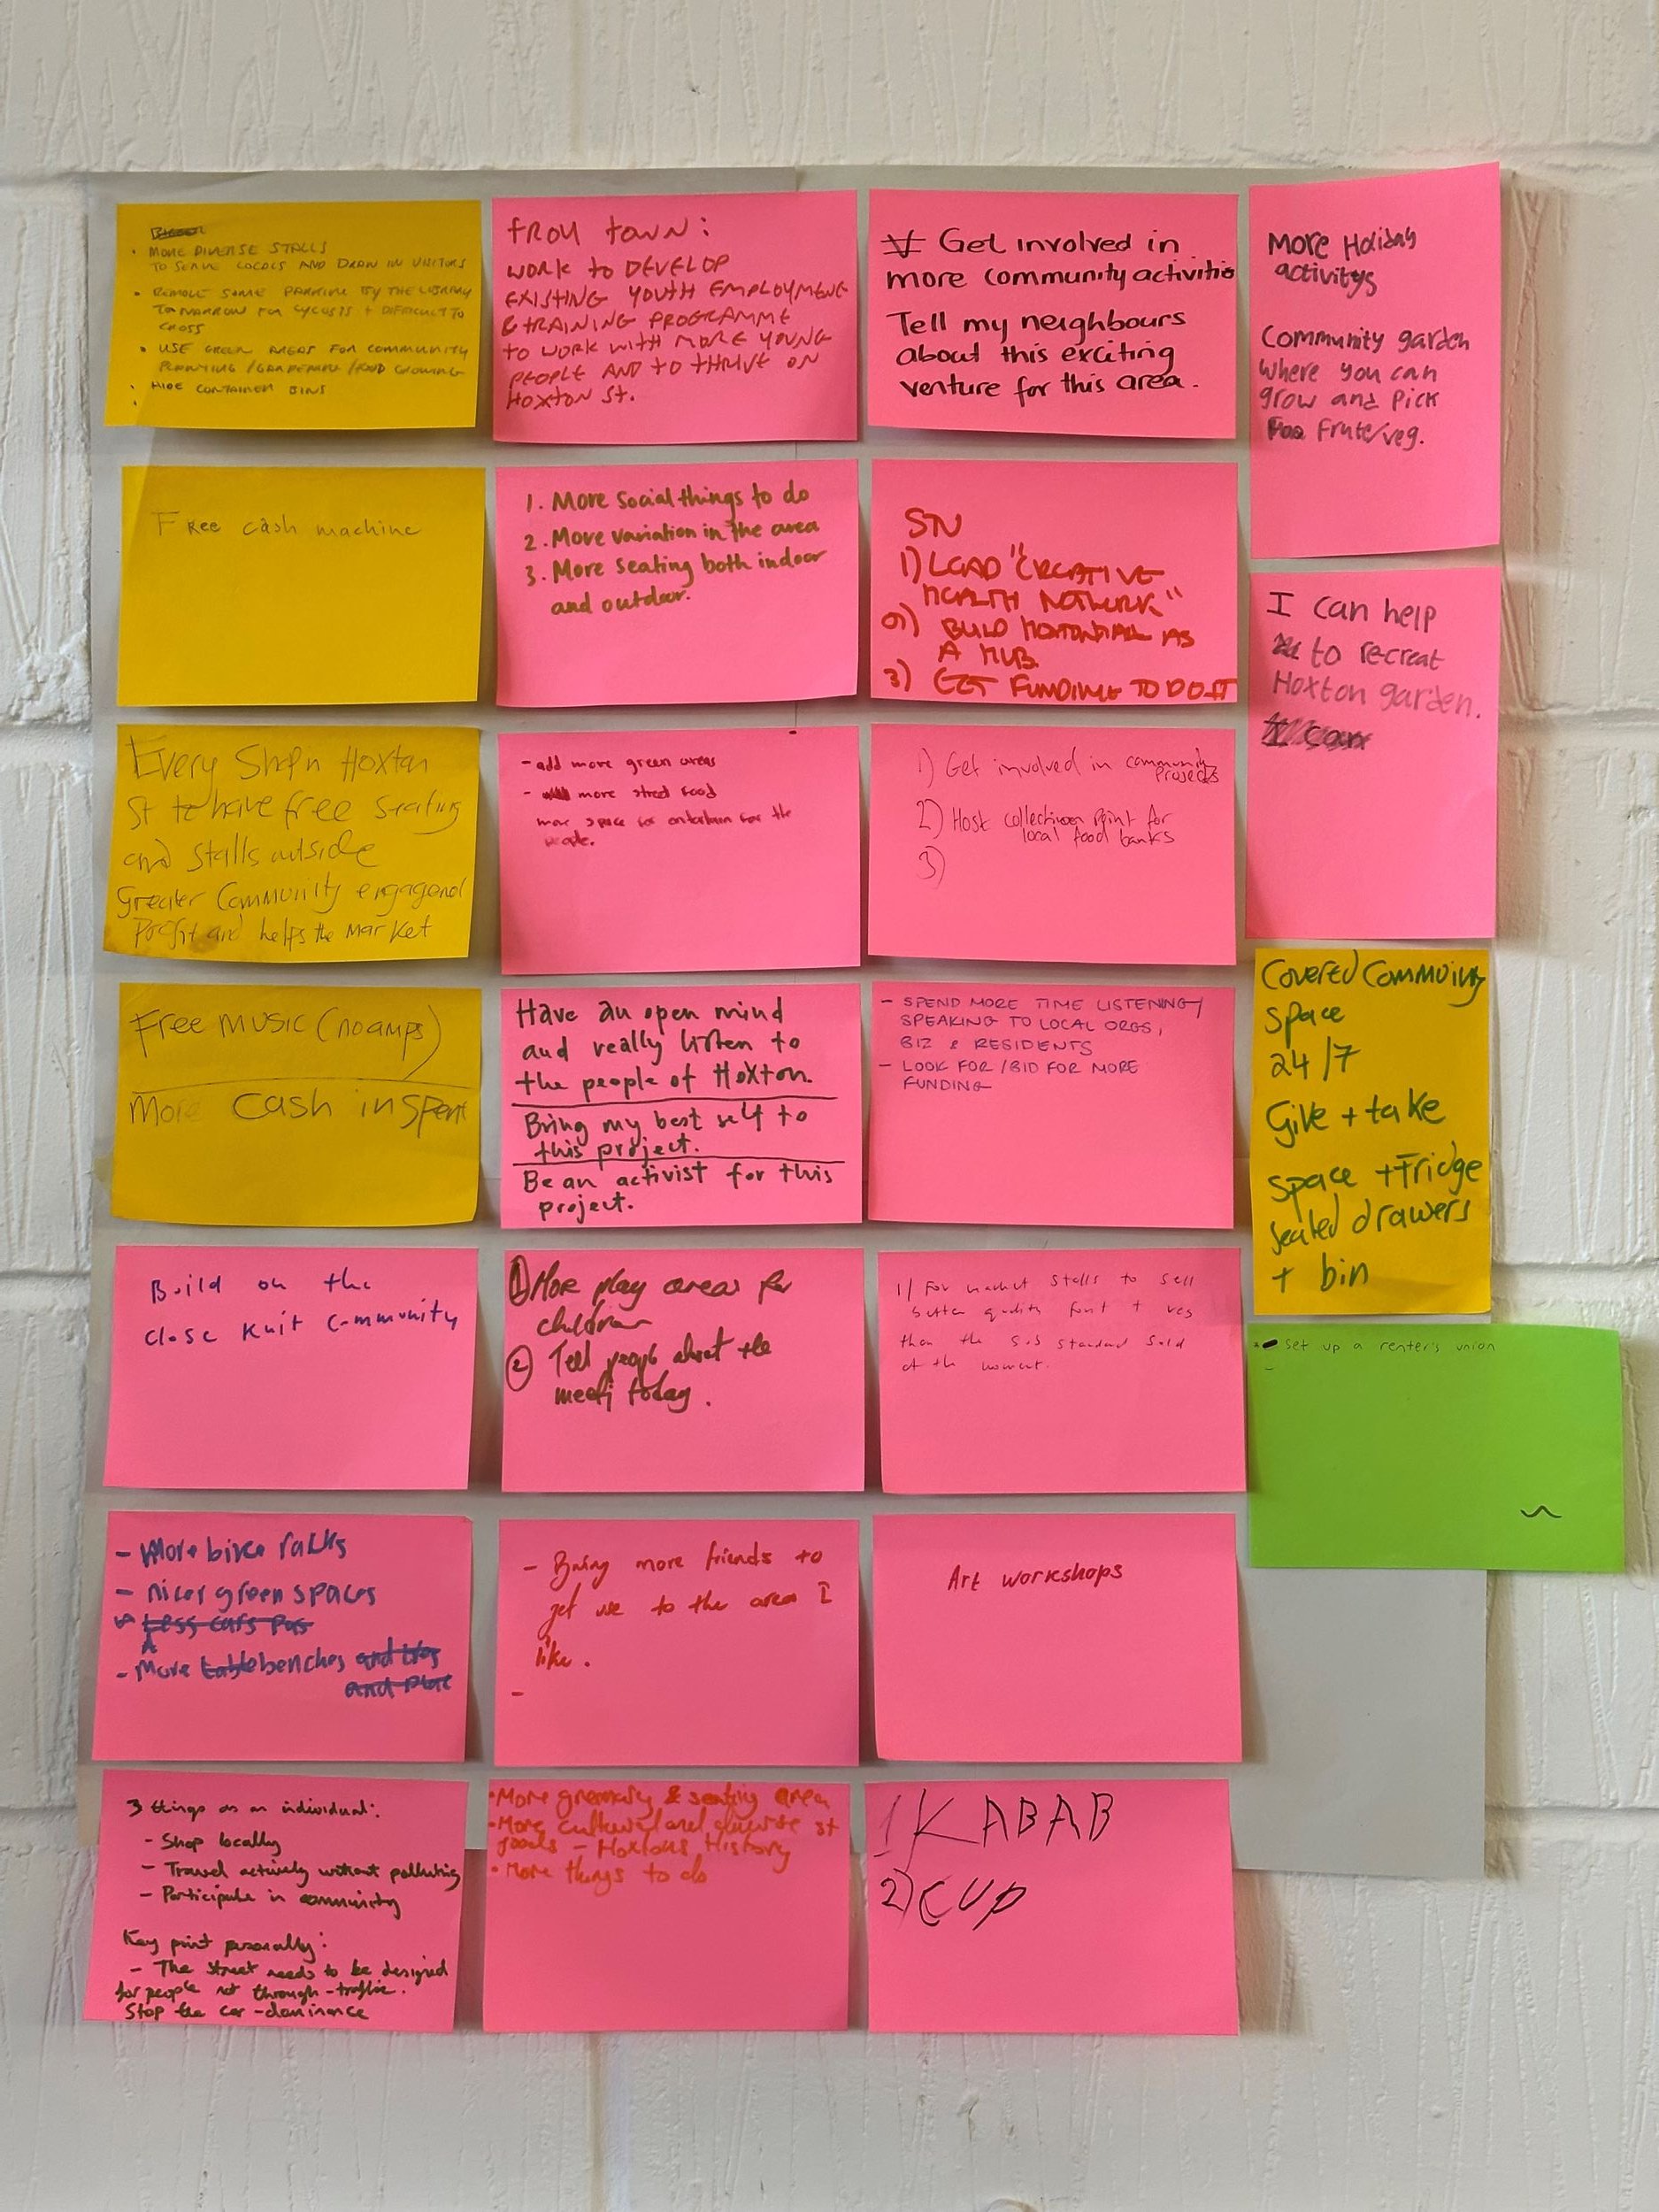 • MORE DIVERSE STALLS
TO SERVE LOCALS AND DRAW IN VISITORS
• REMOVE SOME PARKING BY THE LIBRARY
TO NARROW FOR CYCLISTS + DIFFICULT TO
CROSS
• USE GREEN AREAS FOR COMMUNITY
PLANTING / GARDENING / FOOD GROWING
• HIDE CONTAINER BINS
•
FROM TOWN:
WORK TO DEVELOP
EXISTING YOUTH EMPLOYMENT
& TRAINING PROGRAMME
TO WORK WITH MORE YOUNG
PEOPLE AND TO THRIVE ON
HOXTON ST.
Get involved in
more community activitie
Tell my neighbours
about this exciting
venture for this area.
More Holiday
activitys
Community garden
where you can
grow and Pick
Frute/veg.
Free cash machine
1. More social things to do
2. More variation in the area
3. More seating both indoor
and outdoor.
SN
1) LEAD "CREATIVE
HEALTH NETWORK"
2) BUILD AS
A HUB
3) GET FUNDING TO DO IT
I can help
to recreat
Hoxton garden.
I can
Every Shop in Hoxton
St to have free seating
and stalls outside
Greater Community
Profit and helps the Market
- add more green areas
- more street food
more space for entertain for the
people.
1) Get involved in community
projects
2) Host collection point for
local food banks
3)
Free music (no amps)
More cash in spent
Have an open mind
and really listen to
the people of Hoxton.
Bring my best self to
this project.
Be an activist for this
project.
- SPEND MORE TIME LISTENING/
SPEAKING TO LOCAL ORGS,
BIZ & RESIDENTS
- LOOK FOR/BID FOR MORE
FUNDING
Covered Community
Space
24/7
Give + take
space + Fridge
sealed drawers
+ bin
Build on the
close knit community
1 More play areas for
children
2 Tell people about the
meeti today.
1/ For market stalls to sell
better quality fruit + veg
than the standard sold
at the moment.
- set up a renter's union
-
- More bike racks
- nicer green spaces
Less cars
- More table benches and
and
- Bring more friends to
get use to the area I
like.
-
Art workshops
3 things as an individual:
- Shop locally
- Travel actively without polluting
- Participate in community
Key point personally:
- The street needs to be designed
for people not through-traffic.
Stop the car-dominance
• More greenery & seating area
• More cultural and diverse st
foods - Hoxtons History
• More things to do
1 KABAB
2) CUP